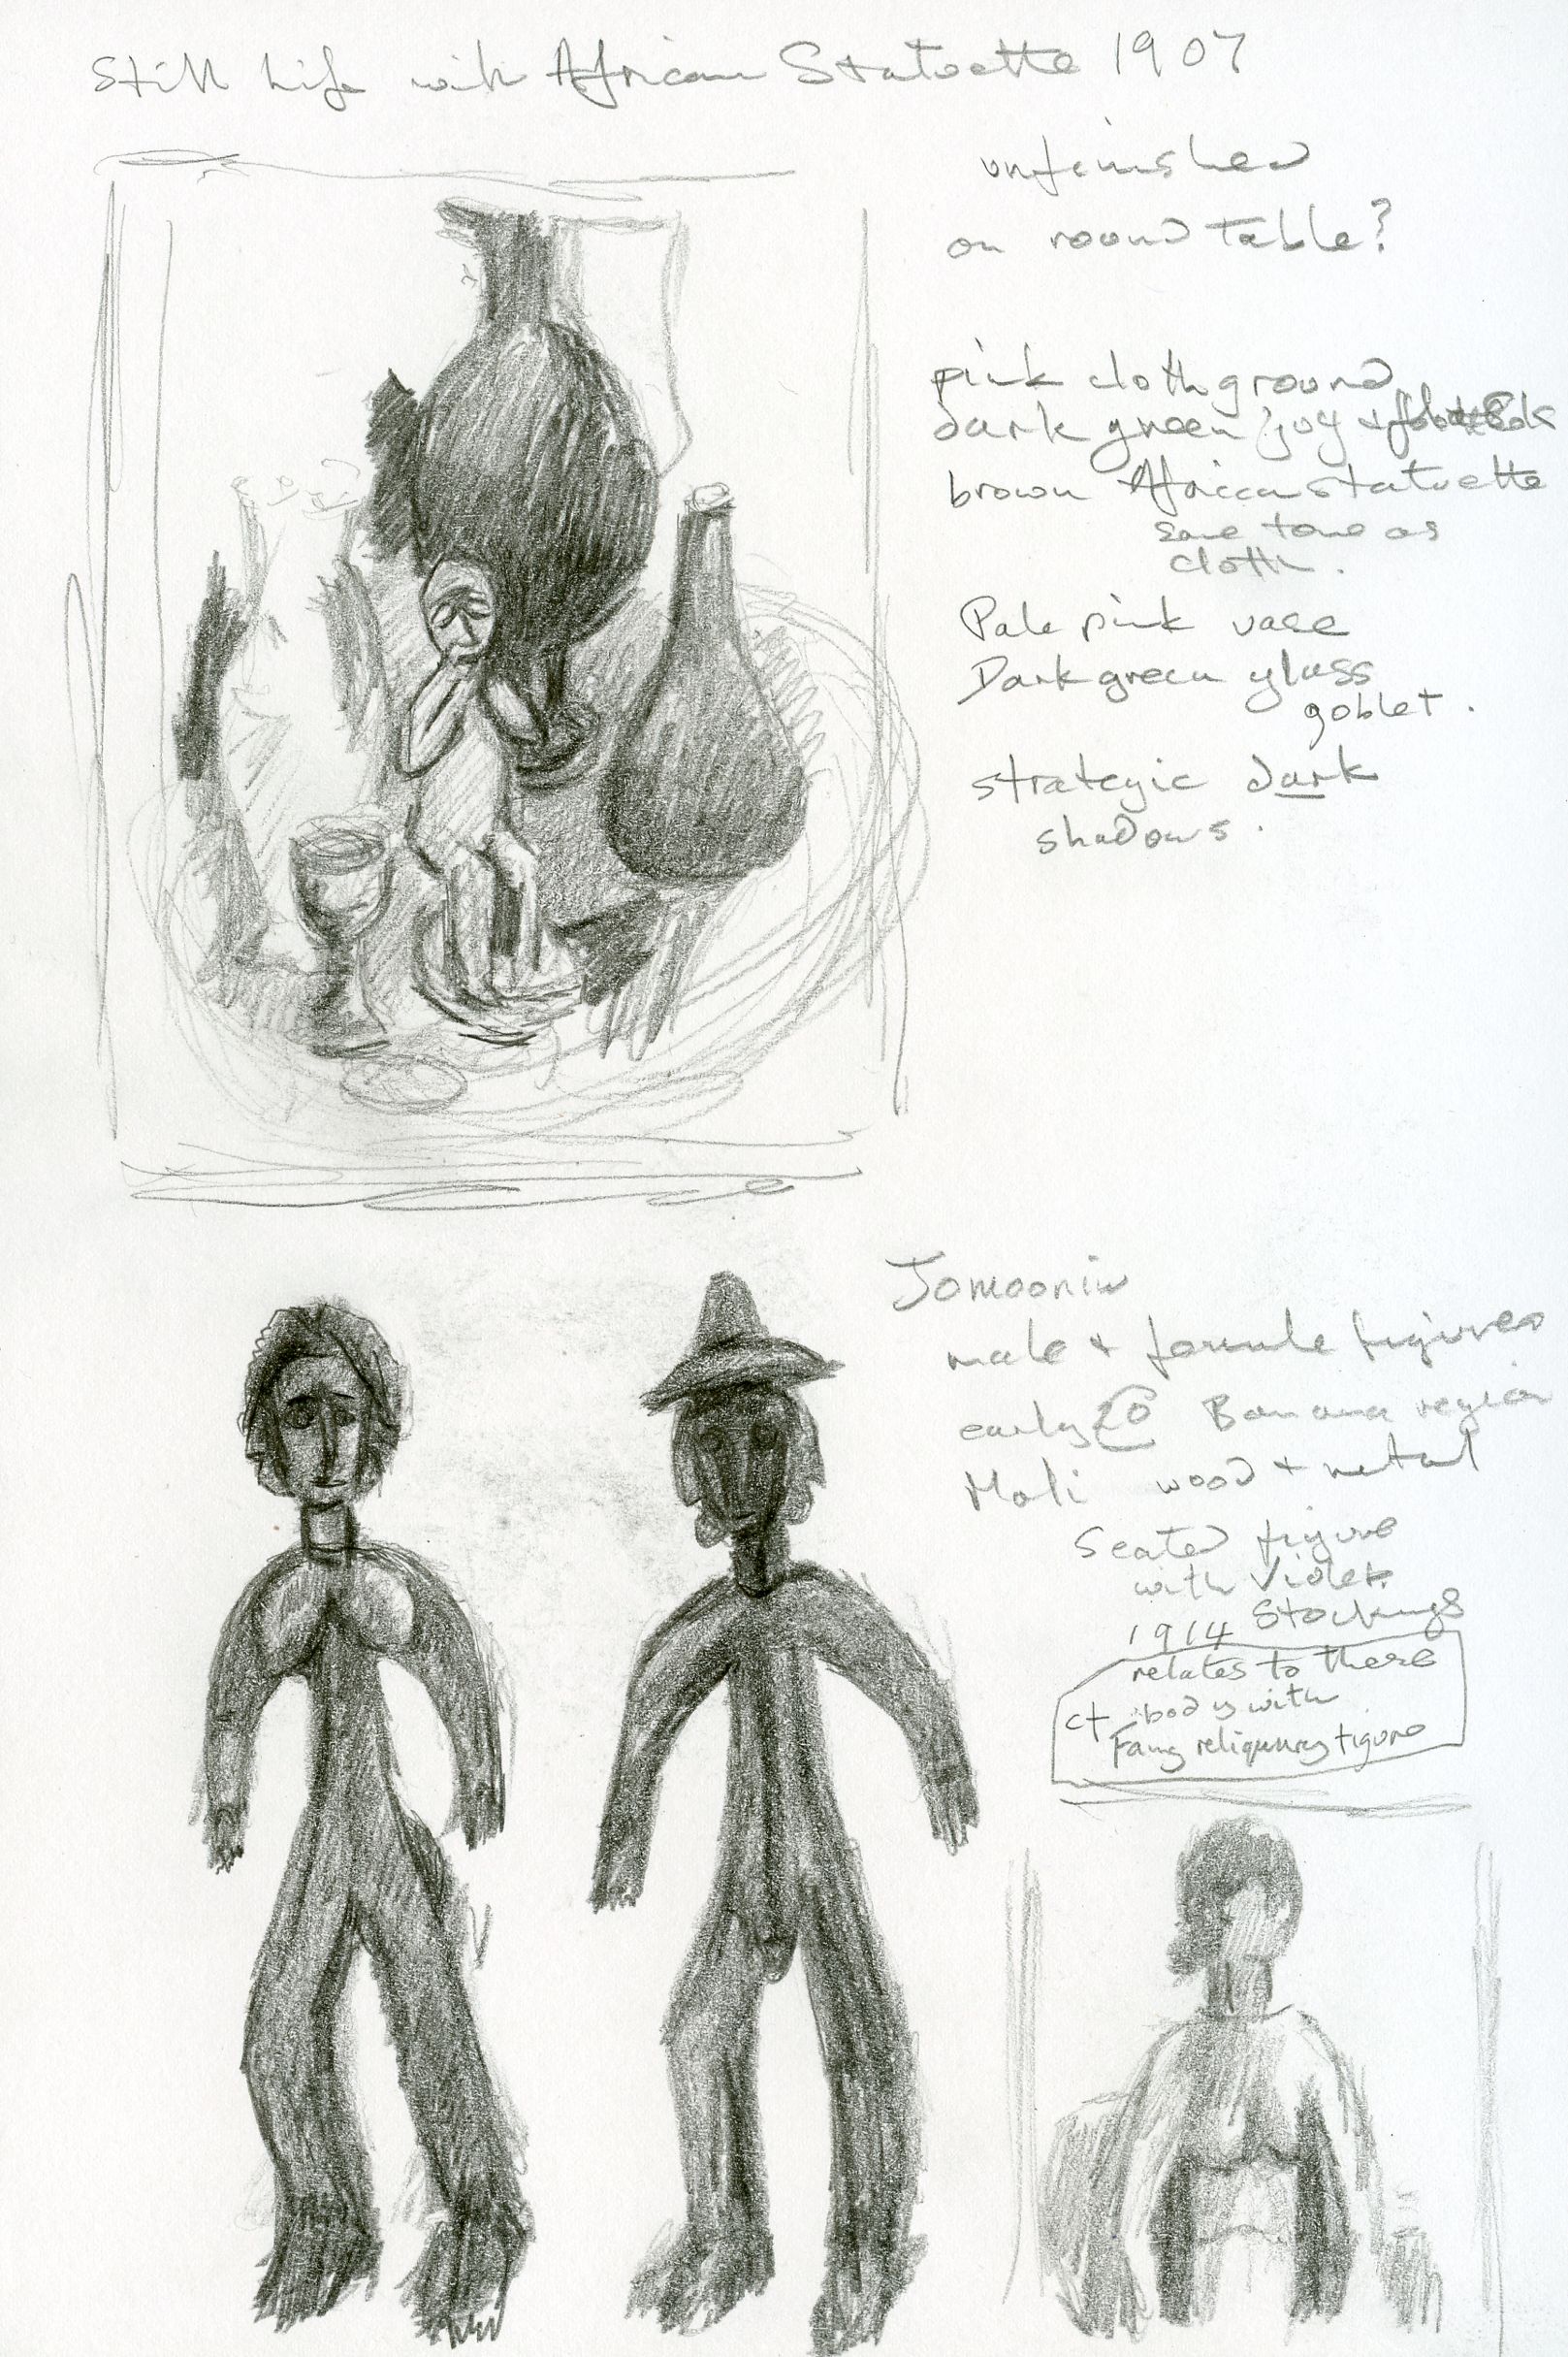 Still Life with African Statuette 1907
unfinished
on round table?
pink cloth ground
dark green jug +
brown African statuette
same tone as
cloth.
Pale pink vase
Dark green glass
goblet.
strategic dark
shadows.
Jomooniw
male + female figures
early 20 Banana region
Mali wood + metal
Seated figure
with Violet
1914 Stockings
relates to there
cf body with
Fang reliquary figure